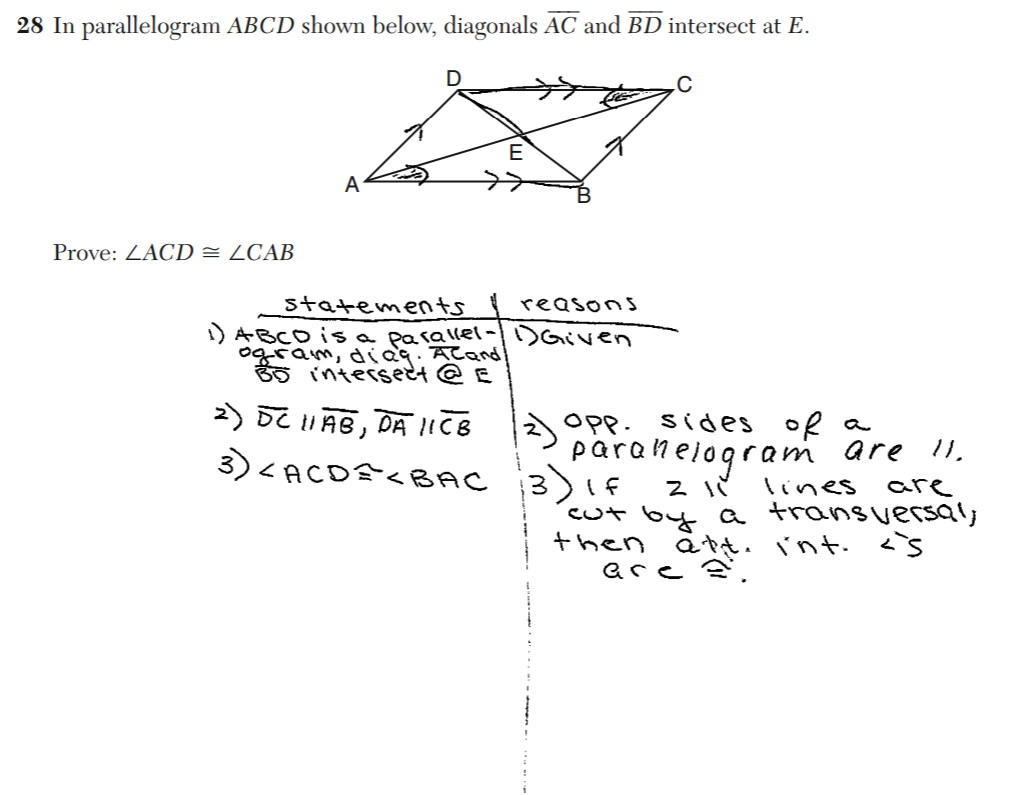 28 In parallelogram ABCD shown below, diagonals AC and BD intersect at E.
D
C
E
A
B
Prove: ∠ACD ≅ ∠CAB
statements | reasons
1) ABCD is a parallel-
ogram, diag. AC and
BD intersect @ E
1) Given
2) DC || AB, DA || CB
2) opp. sides of a
parallelogram are ||.
3) <ACD ≅ <BAC
3) if 2 || lines are
cut by a transversal,
then alt. int. <'s
are ≅.